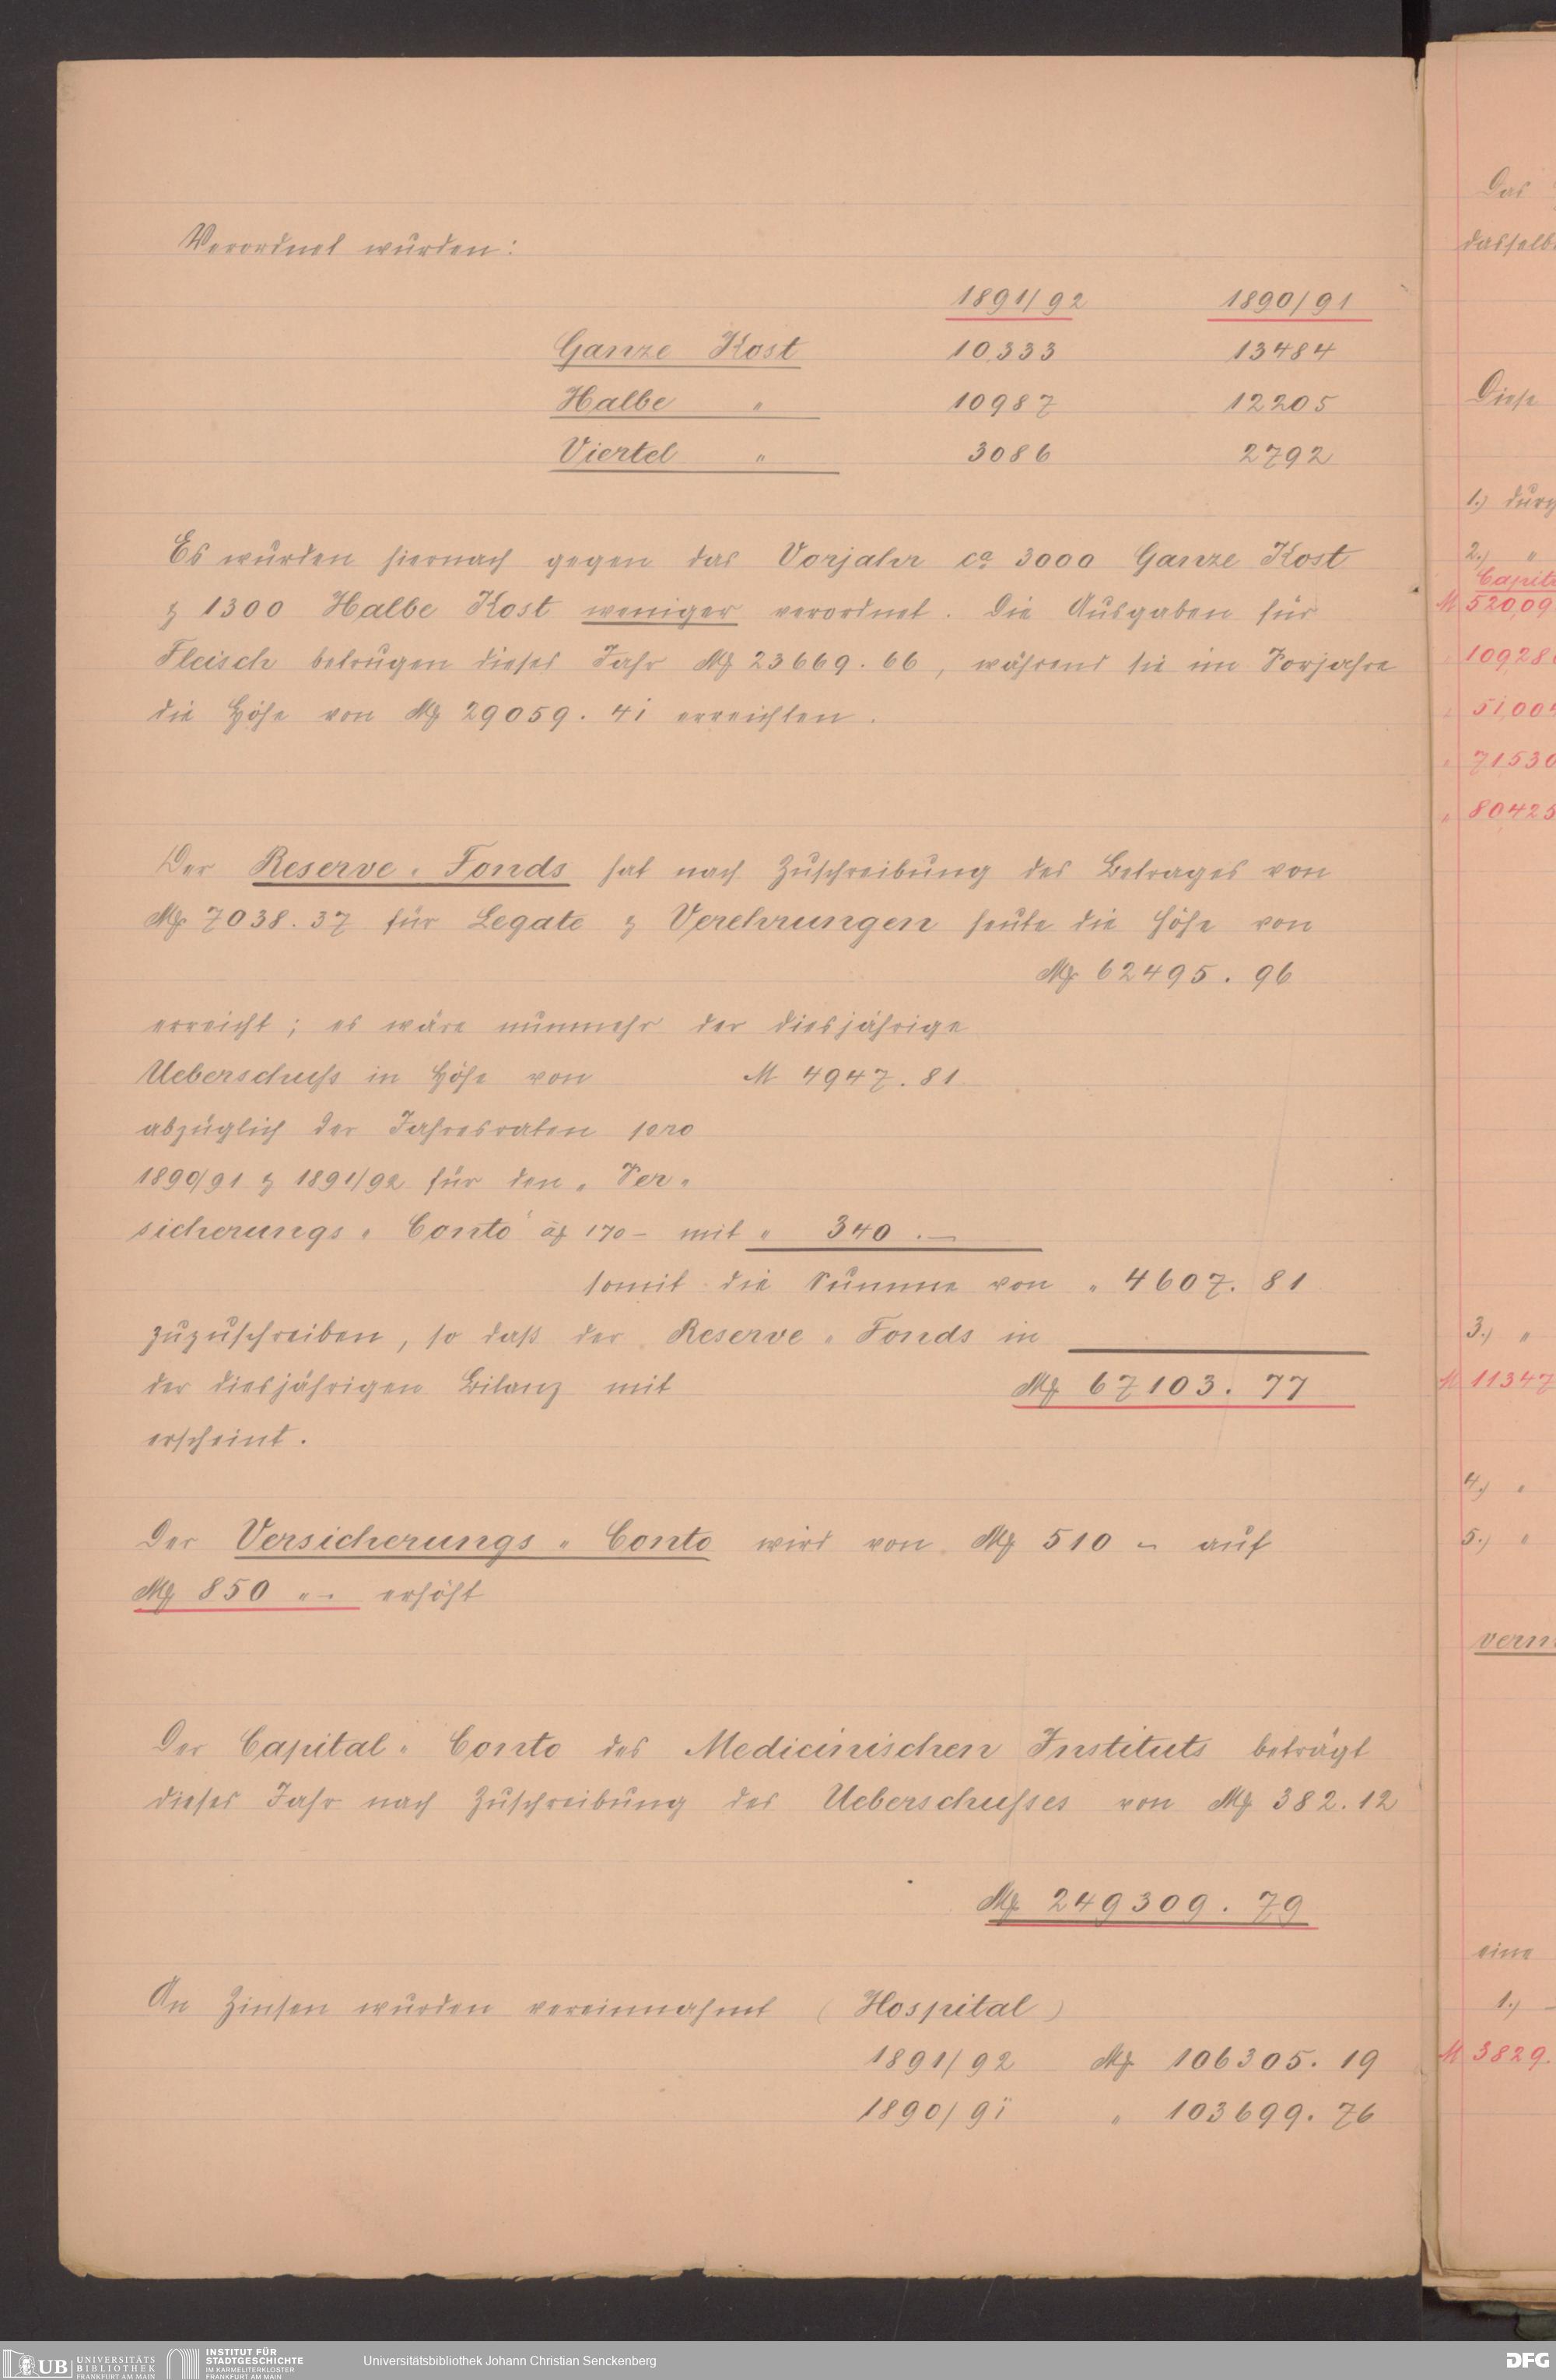 Verordnet wurden:
1891/92 1890/91
Ganze Kost 10333 13484
Halbe " 10987 12205
Viertel " 3086 2792
Es wurden hiernach gegen das Vorjahr ca 3000 Ganze Kost
& 1300 Halbe Kost weniger verordnet. Die Ausgaben für
Fleisch betrugen dieses Jahr Mk 23669.66, während sie im Vorjahre
die Höhe von Mk 29059.41 erreichten.
Der Reserve-Fonds hat nach Zuschreibung des Betrages von
Mk 7038.37 für Legate & Verehrungen heute die Höhe von
Mk 62495.96
erreicht; es wäre nunmehr der diesjährige
Ueberschuss in Höhe von M 4947.81
abzüglich der Jahresraten pro
1890/91 & 1891/92 für den "Ver-
sicherungs-Conto" à Mk 170- mit " 340.-
somit die Summe von " 4607.81
zuzuschreiben, so daß der Reserve-Fonds in
der diesjährigen Bilanz mit Mk 67103.77
erscheint.
Der Versicherungs-Conto wird von Mk 510 - auf
Mk 850 "- erhöht
Der Capital-Conto des Medicinischen Instituts beträgt
dieses Jahr nach Zuschreibung des Ueberschusses von Mk 382.12
Mk 249309.79
An Zinsen wurden vereinnahmt (Hospital)
1891/92 Mk 106305.19
1890/91 " 103699.76
Das
Diese
1.)
2.) "
M 52009
10928
5100
71530
80425
3.) "
M 11347
4.) "
5.) "
eine
1.) -
M 3829.
UB UNIVERSITÄTS
BIBLIOTHEK
FRANKFURT AM MAIN
INSTITUT FÜR
STADTGESCHICHTE
IM KARMELITERKLOSTER
FRANKFURT AM MAIN
Universitätsbibliothek Johann Christian Senckenberg
DFG